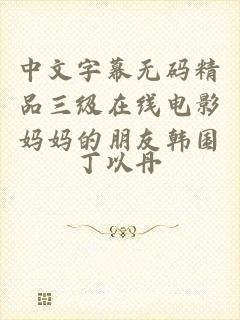 中文字幕无码精
品三级在线电影
妈妈的朋友韩国
丁以丹